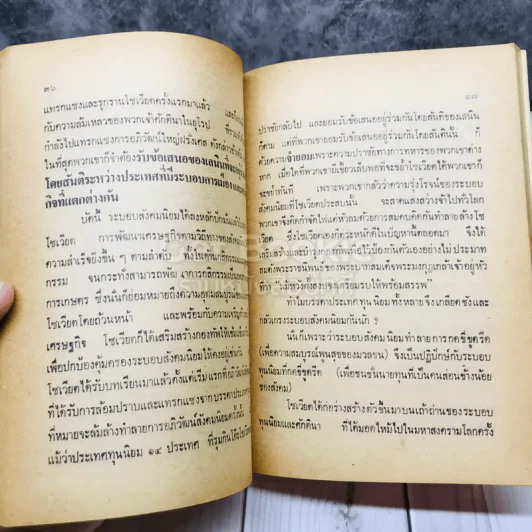 ๓๖
แทรกแซงและรุกรานโซเวียตครั้งแรกมาแล้ว
กับความล้มเหลวของพวกเจ้าศักดินาในยุโรป
กำลังไปแทรกแซงการอภิวัฒน์ใหญ่ฝรั่งเศส
ในที่สุดพวกเขาก็จำต้องรับข้อเสนอของเลนินที่จะอยู่
โดยสันติระหว่างประเทศที่มีระบอบการเมืองและ
กิจที่แตกต่างกัน
บัดนี้ ระบอบสังคมนิยมได้ลงหลักปักมั่น
โซเวียต การพัฒนาเศรษฐกิจตามวิถีทางของ
ความสำเร็จยิ่งขึ้น ๆ ตามลำดับ
กรรม จนกระทั่งสามารถพัฒนาการกสิกรรม
การเกษตร ซึ่งนั่นก็ย่อมหมายถึงความอุดมสมบูรณ์
โซเวียตโดยถ้วนหน้า และพร้อมกับความเจริญ
เศรษฐกิจ โซเวียตก็ได้เสริมสร้างกองทัพให้เข้มแข็ง
เพื่อปกป้องคุ้มครองระบอบสังคมนิยมให้คงอยู่
โซเวียตได้รับบทเรียนมาแล้วตั้งแต่เริ่มแรกที่อภิวัฒน์
ที่ได้รับการล้อมปราบและแทรกแซงจากบรรดาประเทศ
ที่หมายจะล้มล้างทำลายการอภิวัฒน์สังคมนิยมครั้งนั้น
แม้ว่าประเทศทุนนิยม ๑๔ ประเทศ ที่รุมกินโต๊ะโซเวียต
๓๗
ปราชัยกลับไป และยอมรับข้อเสนออยู่ร่วมกันโดยสันติของเลนิน
ก็ตาม แต่ที่พวกเขายอมรับข้อเสนออยู่ร่วมกันโดยสันตินั้น ก็
ด้วยความจำยอมเพราะความปราชัยทางการทหารของพวกเขาต่าง
หาก เมื่อใดที่พวกเขาเชื่อเสบพอที่จะย่ำโซเวียตได้พวกเขาก็
จะย่ำทันที เพราะพวกเขากลัวว่า ความรุ่งโรจน์ของระบอบ
สังคมนิยมที่โซเวียตประสบนั้น จะสาดแสงสว่างไปทั่วโลก
พวกเขาจึงคิดกำจัดไฟแต่หัวลมด้วยการสมคบคิดกันทำลายล้างโซ
เวียต ซึ่งโซเวียตเองก็ตระหนักถึงปัญหานี้ตลอดมา จึงได้
ทำไมบรรดาประเทศทุนนิยมทั้งหลายจึงเกลียดชังและ
กลัวเกรงระบอบสังคมนิยมกันนัก ?
นั่นก็เพราะว่าระบอบสังคมนิยมทำลายการกดขี่ขูดรีด
(เพื่อความสมบูรณ์พูนสุขของมวลชน) จึงเป็นปฏิปักษ์กับระบอบ
ทุนนิยมที่กดขี่ขูดรีด (เพื่อชนชั้นนายทุนที่เป็นคนส่วนข้างน้อย
ของสังคม)
โซเวียตได้ก่อร่างสร้างตัวขึ้นมาบนเถ้าถ่านของระบอบ
ทุนนิยมและศักดินา ที่ได้มอดไหม้ไปในมหาสงครามโลกครั้ง